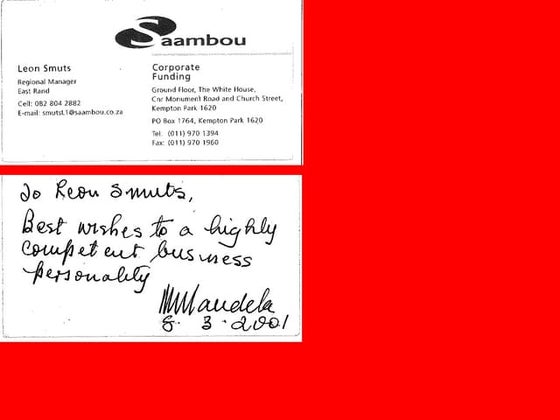 Saambou
Leon Smuts
Regional Manager
East Rand
Cell: 082 804 2882
E-mail: smutsl.1@saambou.co.za
Corporate
Funding
Ground Floor, The White House,
Cnr Monument Road and Church Street,
Kempton Park 1620
PO Box 1764, Kempton Park 1620
Tel. (011) 970 1394
Fax: (011) 970 1960
To Leon Smuts,
Best wishes to a highly
competent business
personality
Mandela
8. 3. 2001